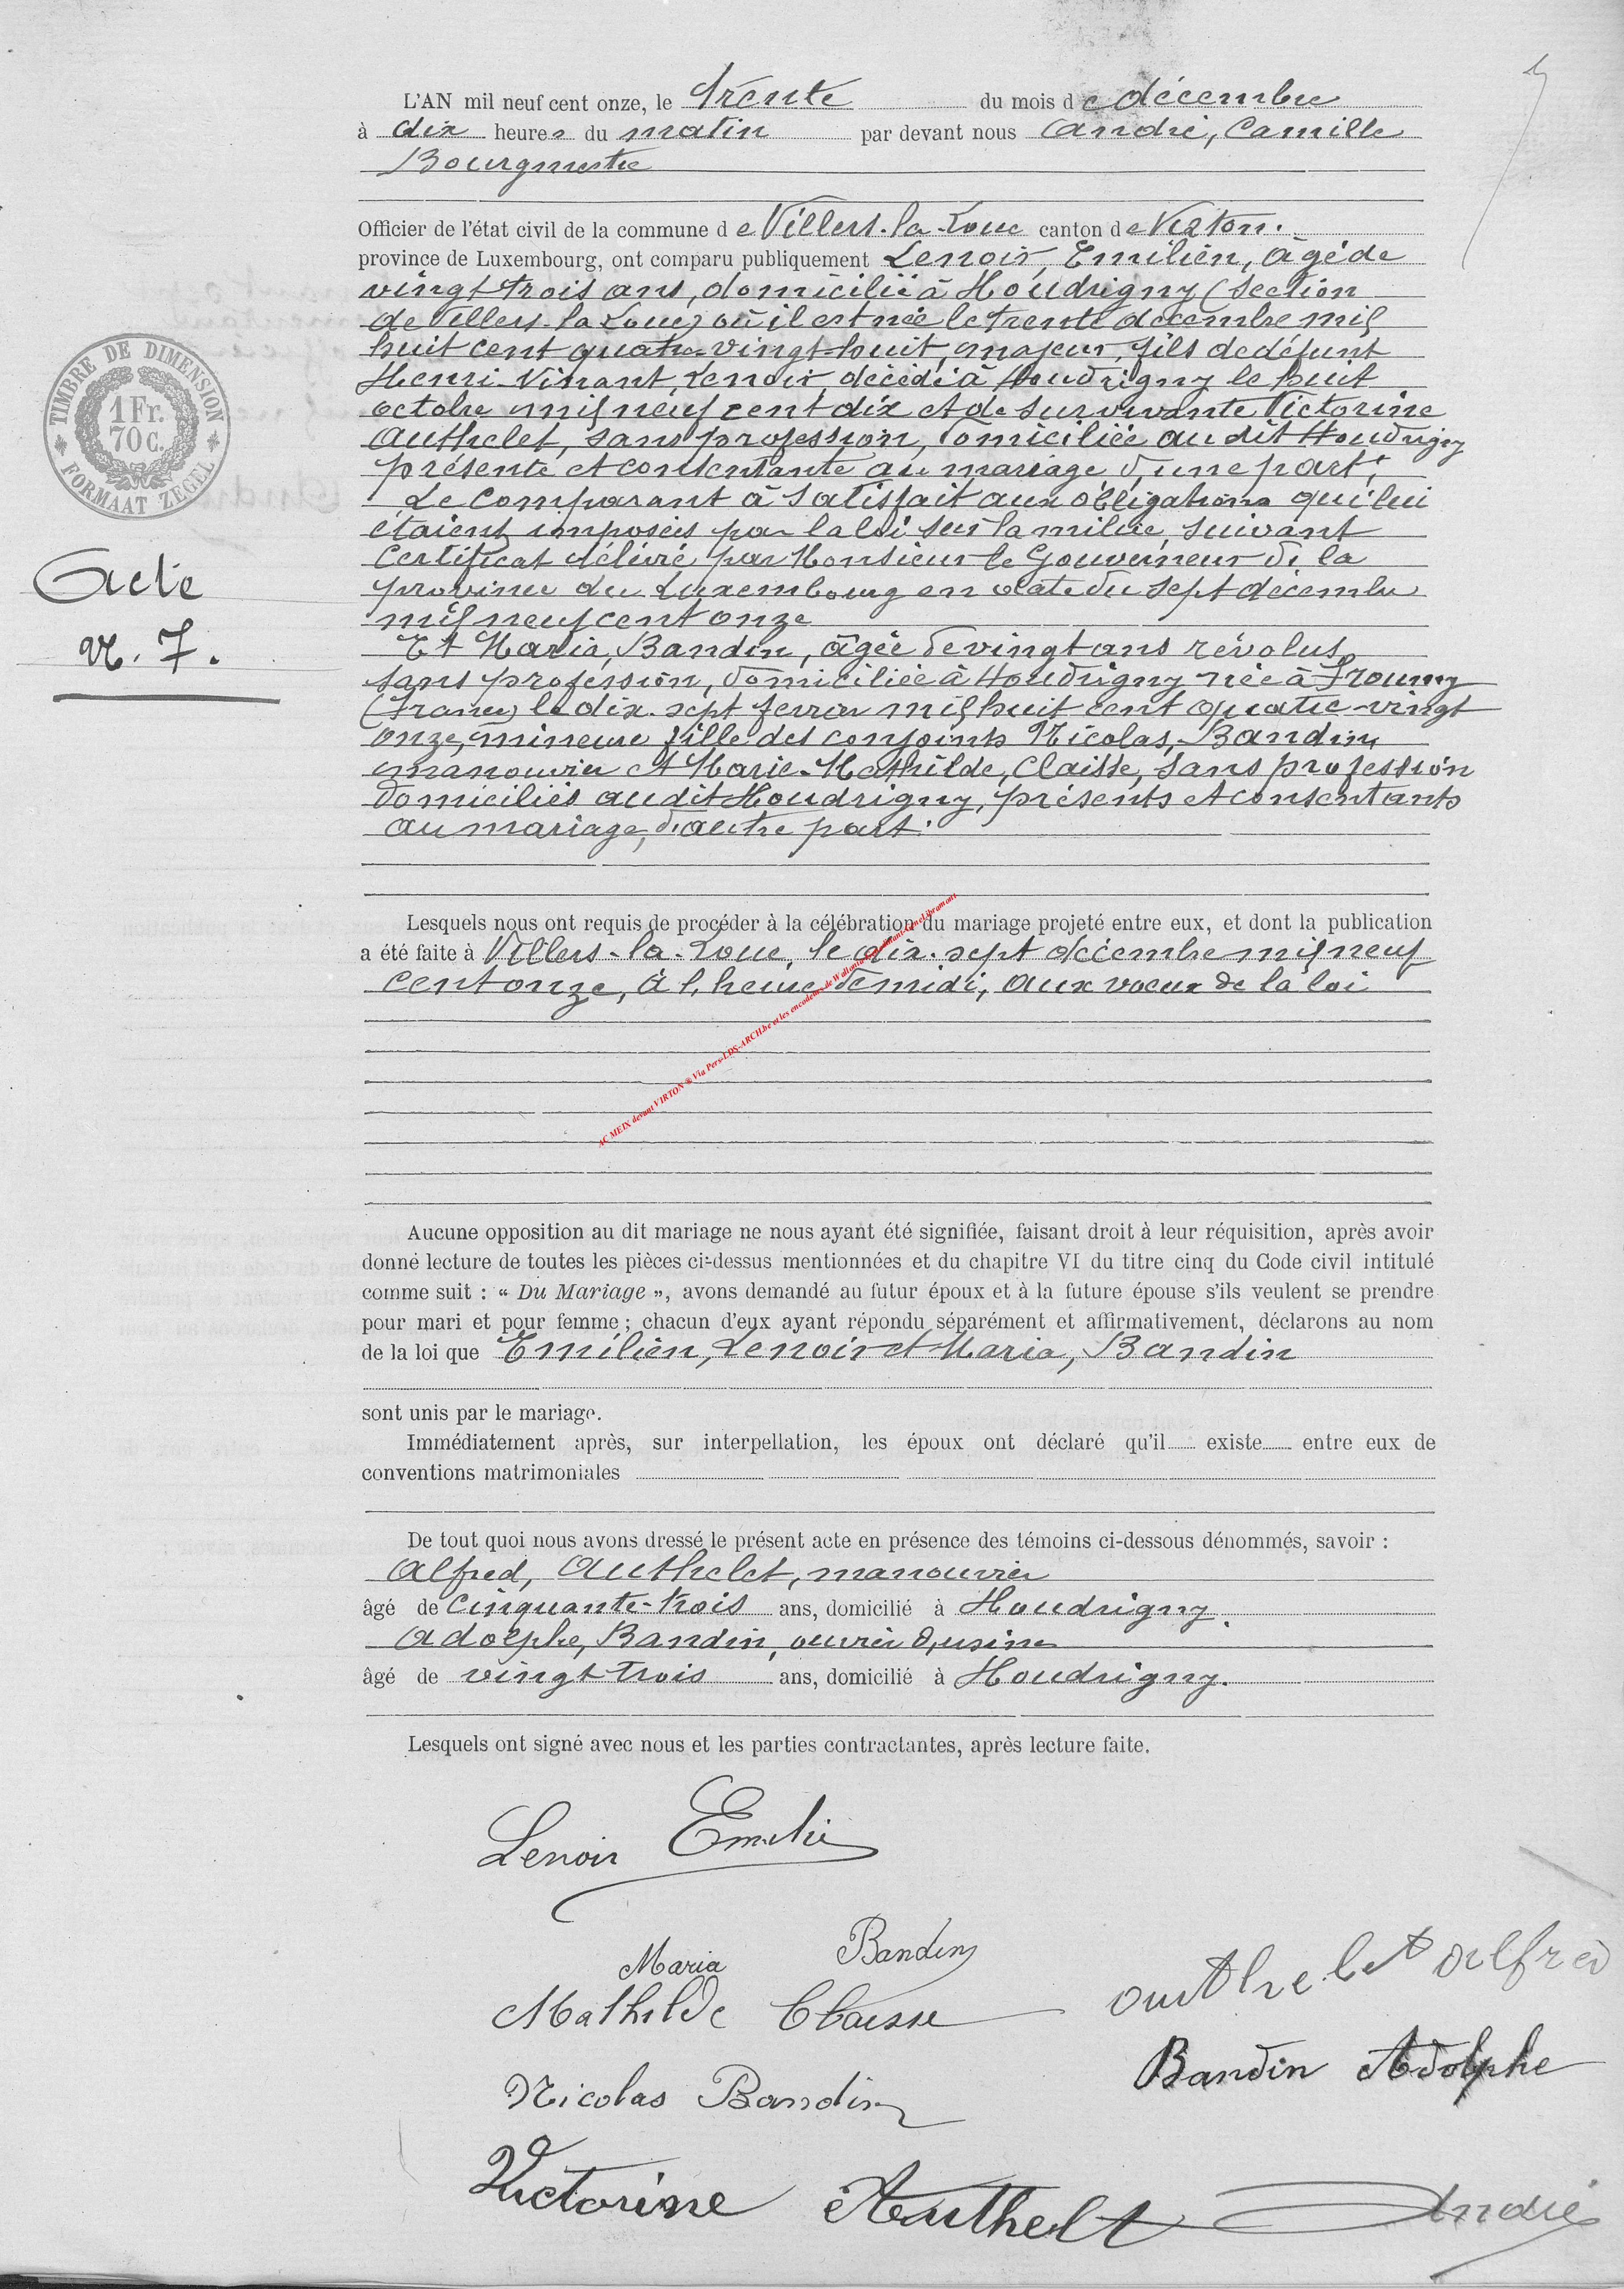 L'AN mil neuf cent onze, le trente du mois de décembre
à dix heures du matin par devant nous André, Camille
Bourgmestre
Officier de l'état civil de la commune de Villers-la-Loue canton de Virton.
province de Luxembourg, ont comparu publiquement Lenoir, Emilien, âgé de
vingt trois ans, domicilié à Houdrigny (section
de Villers-la-Loue) où il est née le trente décembre mil
huit cent quatre-vingt-huit, majeur, fils de défunt
Henri Lenoir, décédé à Houdrigny le huit
octobre mil neuf cent dix et de survivante Victorine
Authelet, sans profession, domiciliée au dit Houdrigny
présente et consentante au mariage, d'une part;
Le comparant à satisfait aux obligations qui lui
étaient imposées par la loi sur la milice, suivant
certificat délivré par Monsieur le Gouverneur de la
province du Luxembourg en date du sept décembre
mil neuf cent onze
Et Maria, Bandin, âgée de vingt ans révolus,
sans profession, domiciliée à Houdrigny née à
(France) le dix-sept février mil huit cent quatre-vingt
onze, mineure fille des conjoints Nicolas, Bandin,
manouvrier et Marie-Mathilde, Claisse, sans profession
domiciliés audit Houdrigny, présents et consentants
au mariage, d'autre part.
TIMBRE DE DIMENSION
1 Fr.
70 c.
FORMAAT ZEGEL
Acte
N. 7.
Lesquels nous ont requis de procéder à la célébration du mariage projeté entre eux, et dont la publication
a été faite à Villers-la-Loue, le dix-sept décembre mil neuf
cent onze, à l'heure de midi, aux voeux de la loi
Aucune opposition au dit mariage ne nous ayant été signifiée, faisant droit à leur réquisition, après avoir
donné lecture de toutes les pièces ci-dessus mentionnées et du chapitre VI du titre cinq du Code civil intitulé
comme suit : « Du Mariage », avons demandé au futur époux et à la future épouse s'ils veulent se prendre
pour mari et pour femme ; chacun d'eux ayant répondu séparément et affirmativement, déclarons au nom
de la loi que Emilien, Lenoir et Maria, Bandin
sont unis par le mariage.
Immédiatement après, sur interpellation, les époux ont déclaré qu'il existe entre eux de
conventions matrimoniales
De tout quoi nous avons dressé le présent acte en présence des témoins ci-dessous dénommés, savoir :
Alfred, Authelet, manouvrier
âgé de cinquante-trois ans, domicilié à Houdrigny.
Adolphe, Bandin, ouvrier d'usine
âgé de vingt trois ans, domicilié à Houdrigny.
Lesquels ont signé avec nous et les parties contractantes, après lecture faite.
Lenoir Emilien
Maria Bandin
Mathilde Claisse
authelet alfred
Bandin Adolphe
Nicolas Bandin
Victorine Authelet
André